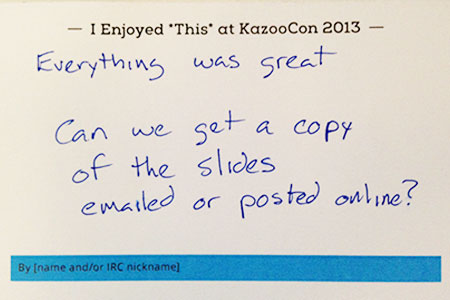 — I Enjoyed *This* at KazooCon 2013 —
Everything was great
Can we get a copy
of the slides
emailed or posted online?
By [name and/or IRC nickname]